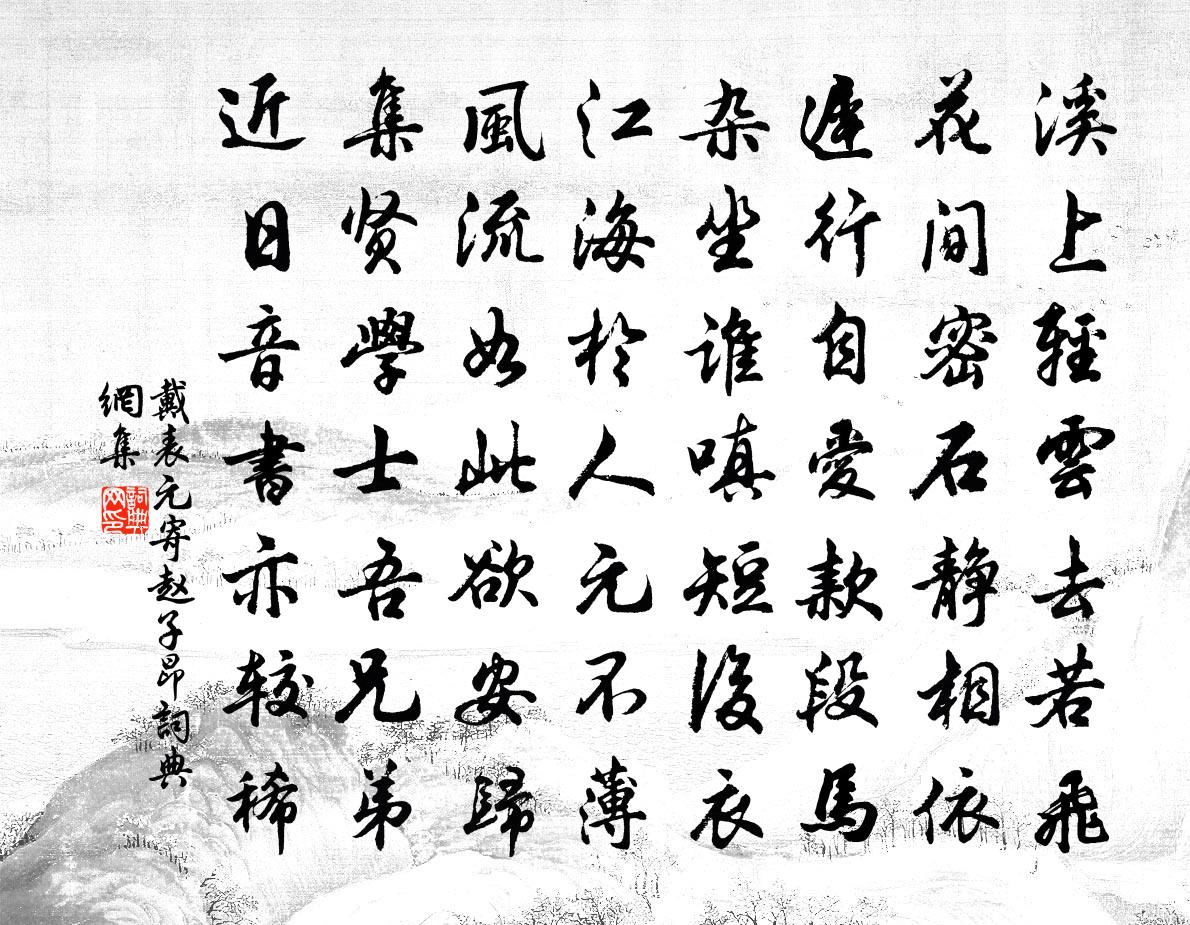 溪上輕雲去若飛
花間密石靜相依
遲行自愛款段馬
杂坐誰嗔短後衣
江海於人元不薄
風流如此欲安歸
集贤學士吾兄弟
近日音書亦较稀
戴表元寄赵子昂詞典
網集
詞典
网印